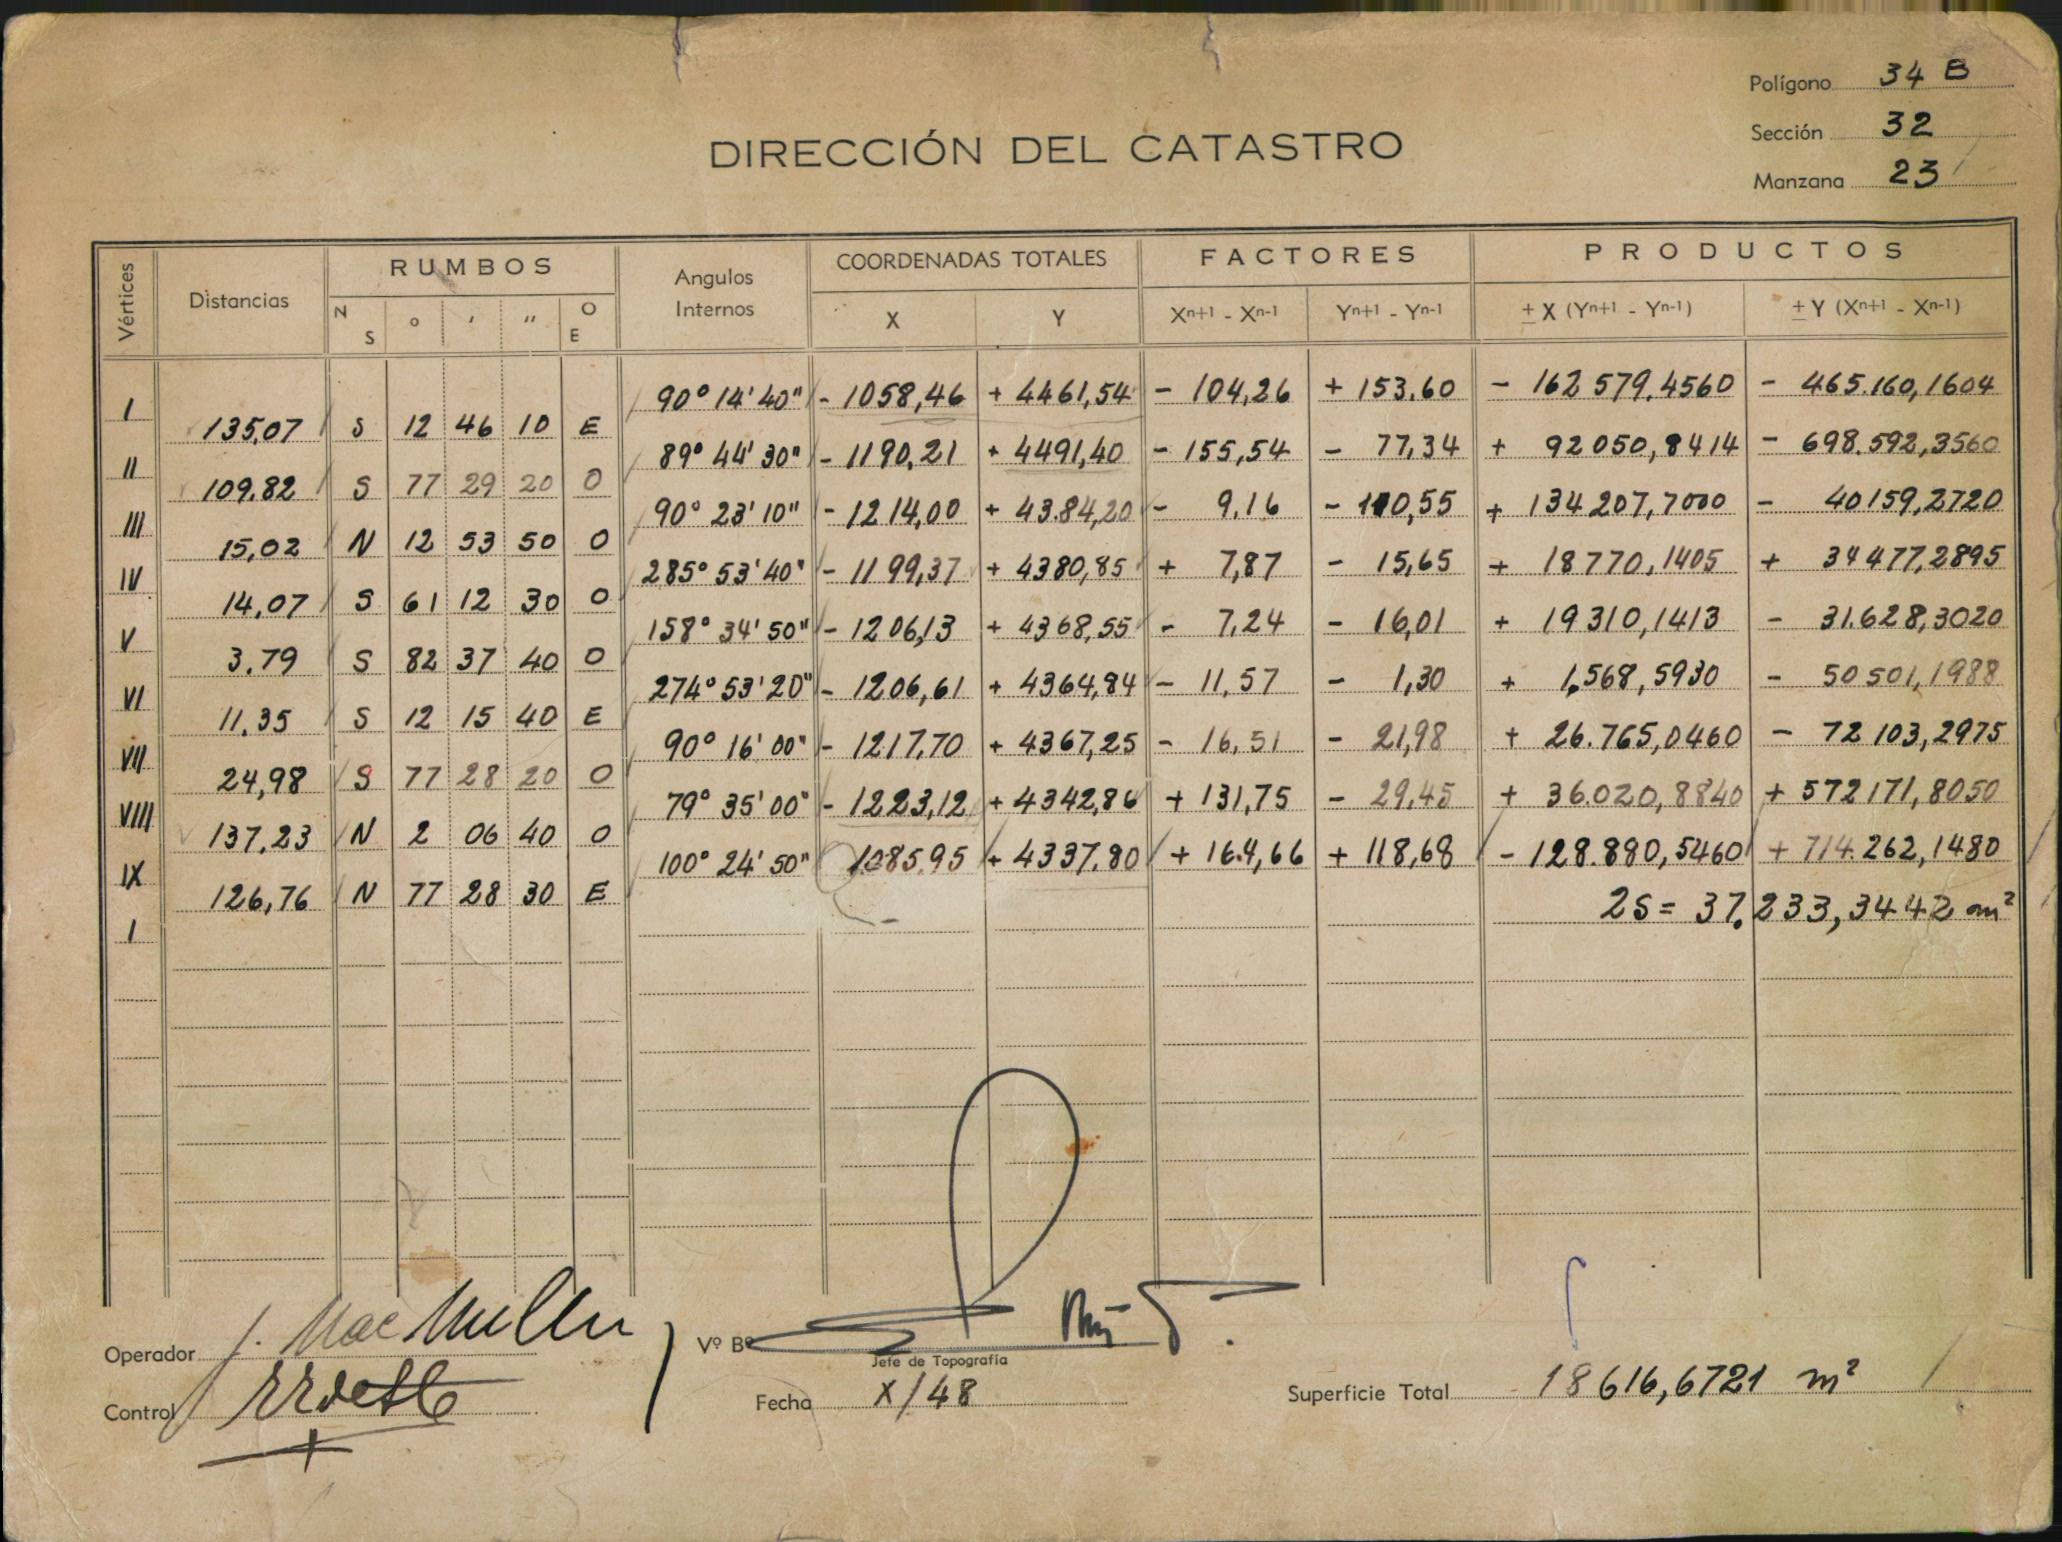 Polígono 34 B
Sección 32
Manzana 23
DIRECCIÓN DEL CATASTRO
Vértices Distancias RUMBOS Angulos Internos COORDENADAS TOTALES FACTORES PRODUCTOS
N S ° ' " O E X Y Xn+1 - Xn-1 Yn+1 - Yn-1 ± X (Yn+1 - Yn-1) ± Y (Xn+1 - Xn-1)
I 90° 14' 40" - 1058,46 + 4461,54 - 104,26 + 153,60 - 162 579,4560 - 465.160,1604
135,07 S 12 46 10 E
II 89° 44' 30" - 1190,21 + 4491,40 - 155,54 - 77,34 + 92050,8414 - 698.592,3560
109,82 S 77 29 20 O
III 90° 23' 10" - 1214,00 + 4384,20 - 9,16 - 110,55 + 134 207,7000 - 40159,2720
15,02 N 12 53 50 O
IV 285° 53' 40" - 1199,37 + 4380,85 + 7,87 - 15,65 + 18770,1405 + 34477,2895
14,07 S 61 12 30 O
V 158° 34' 50" - 1206,13 + 4368,55 - 7,24 - 16,01 + 19310,1413 - 31.628,3020
3,79 S 82 37 40 O
VI 274° 53' 20" - 1206,61 + 4364,84 - 11,57 - 1,30 + 1.568,5930 - 50501,1988
11,35 S 12 15 40 E
VII 90° 16' 00" - 1217,70 + 4367,25 - 16,51 - 21,98 + 26.765,0460 - 72 103,2975
24,98 S 77 28 20 O
VIII 79° 35' 00" - 1223,12 + 4342,86 + 131,75 - 29,45 + 36.020,8840 + 572171,8050
137,23 N 2 06 40 O
IX 100° 24' 50" 1085,95 + 4337,80 + 164,66 + 118,68 - 128.880,5460 + 714.262,1480
126,76 N 77 28 30 E
I 2S = 37.233,3442 m²
Operador J. Mac Millan
Control
Vº Bº
Jefe de Topografía
Fecha X/48
Superficie Total 18616,6721 m²